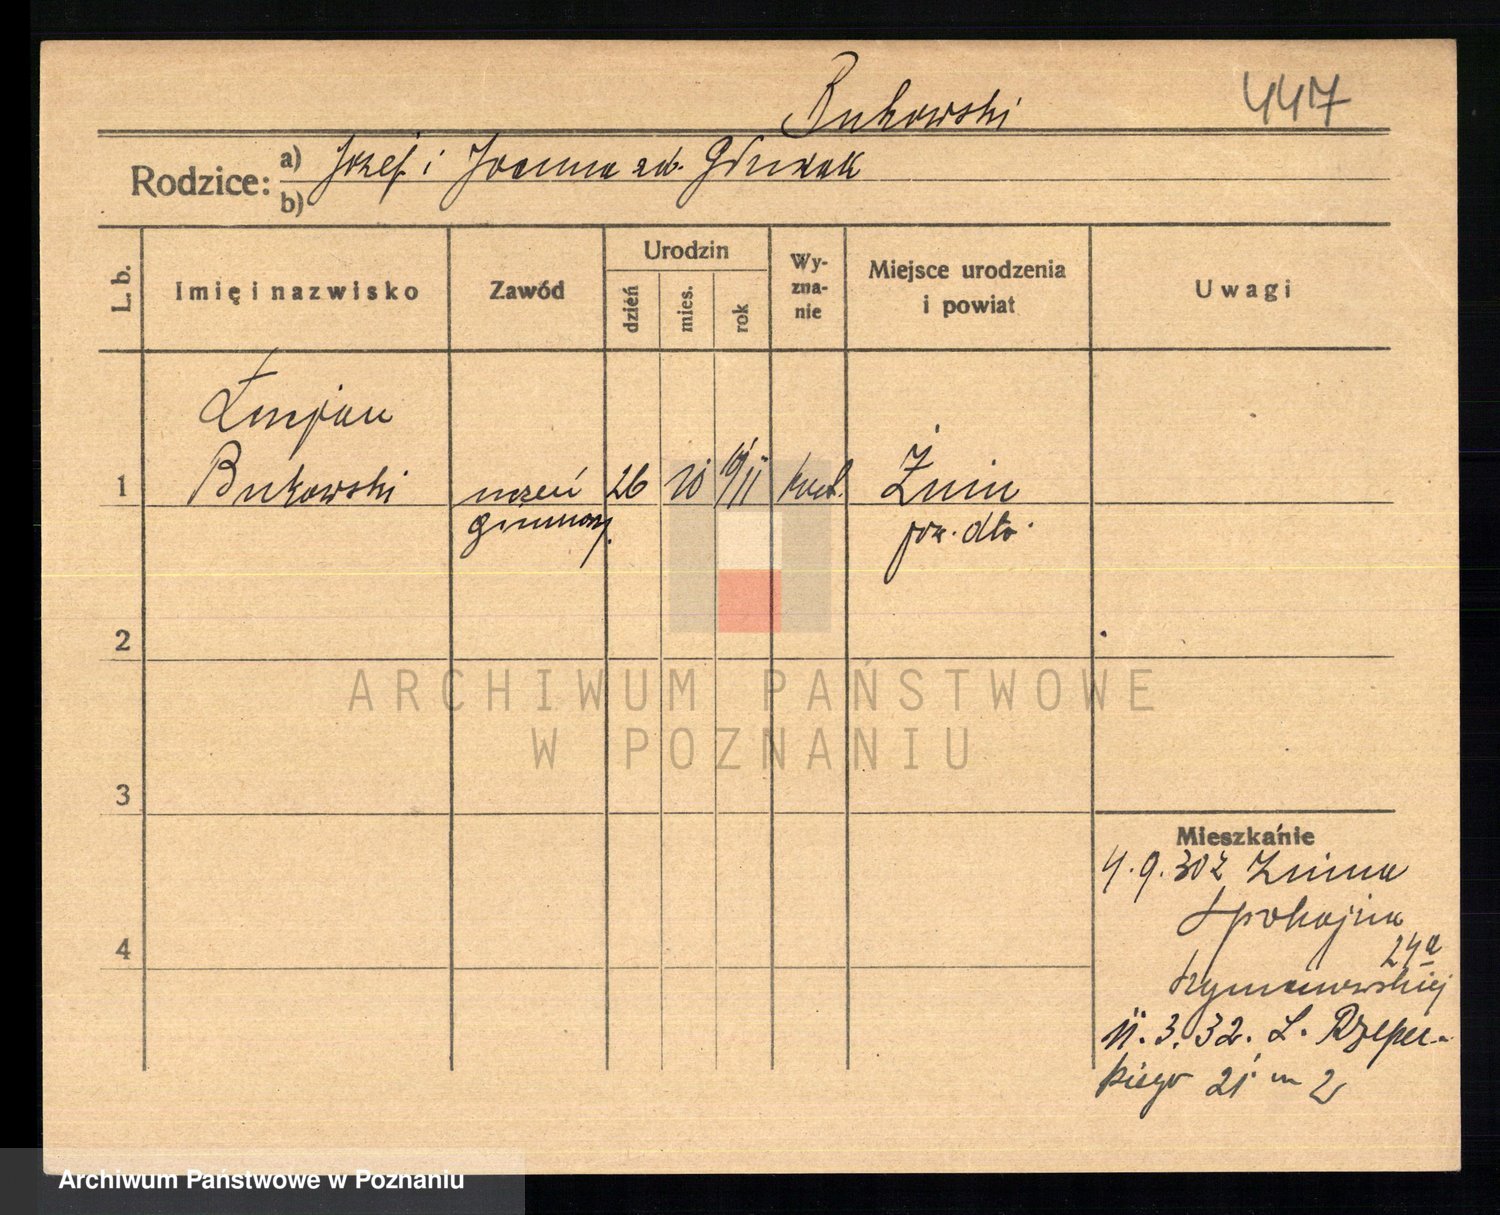 Bukowski
447
Rodzice: a) Józef i Joanna zd.
b)
L. b.
Imię i nazwisko
Zawód
Urodzin
dzień
mies.
rok
Wy-
zna-
nie
Miejsce urodzenia
i powiat
Uwagi
Łucjan
1 Bukowski uczeń 26 10 19/11 kat. Żnin
gimnazj. pow. dto.
2
ARCHIWUM PAŃSTWOWE
W POZNANIU
3
Mieszkanie
4.9.30 z Żnina
Spokojna
4
24a
Szymanowskiej
11.3.32. L. Rzepec-
kiego 21 m 2
Archiwum Państwowe w Poznaniu